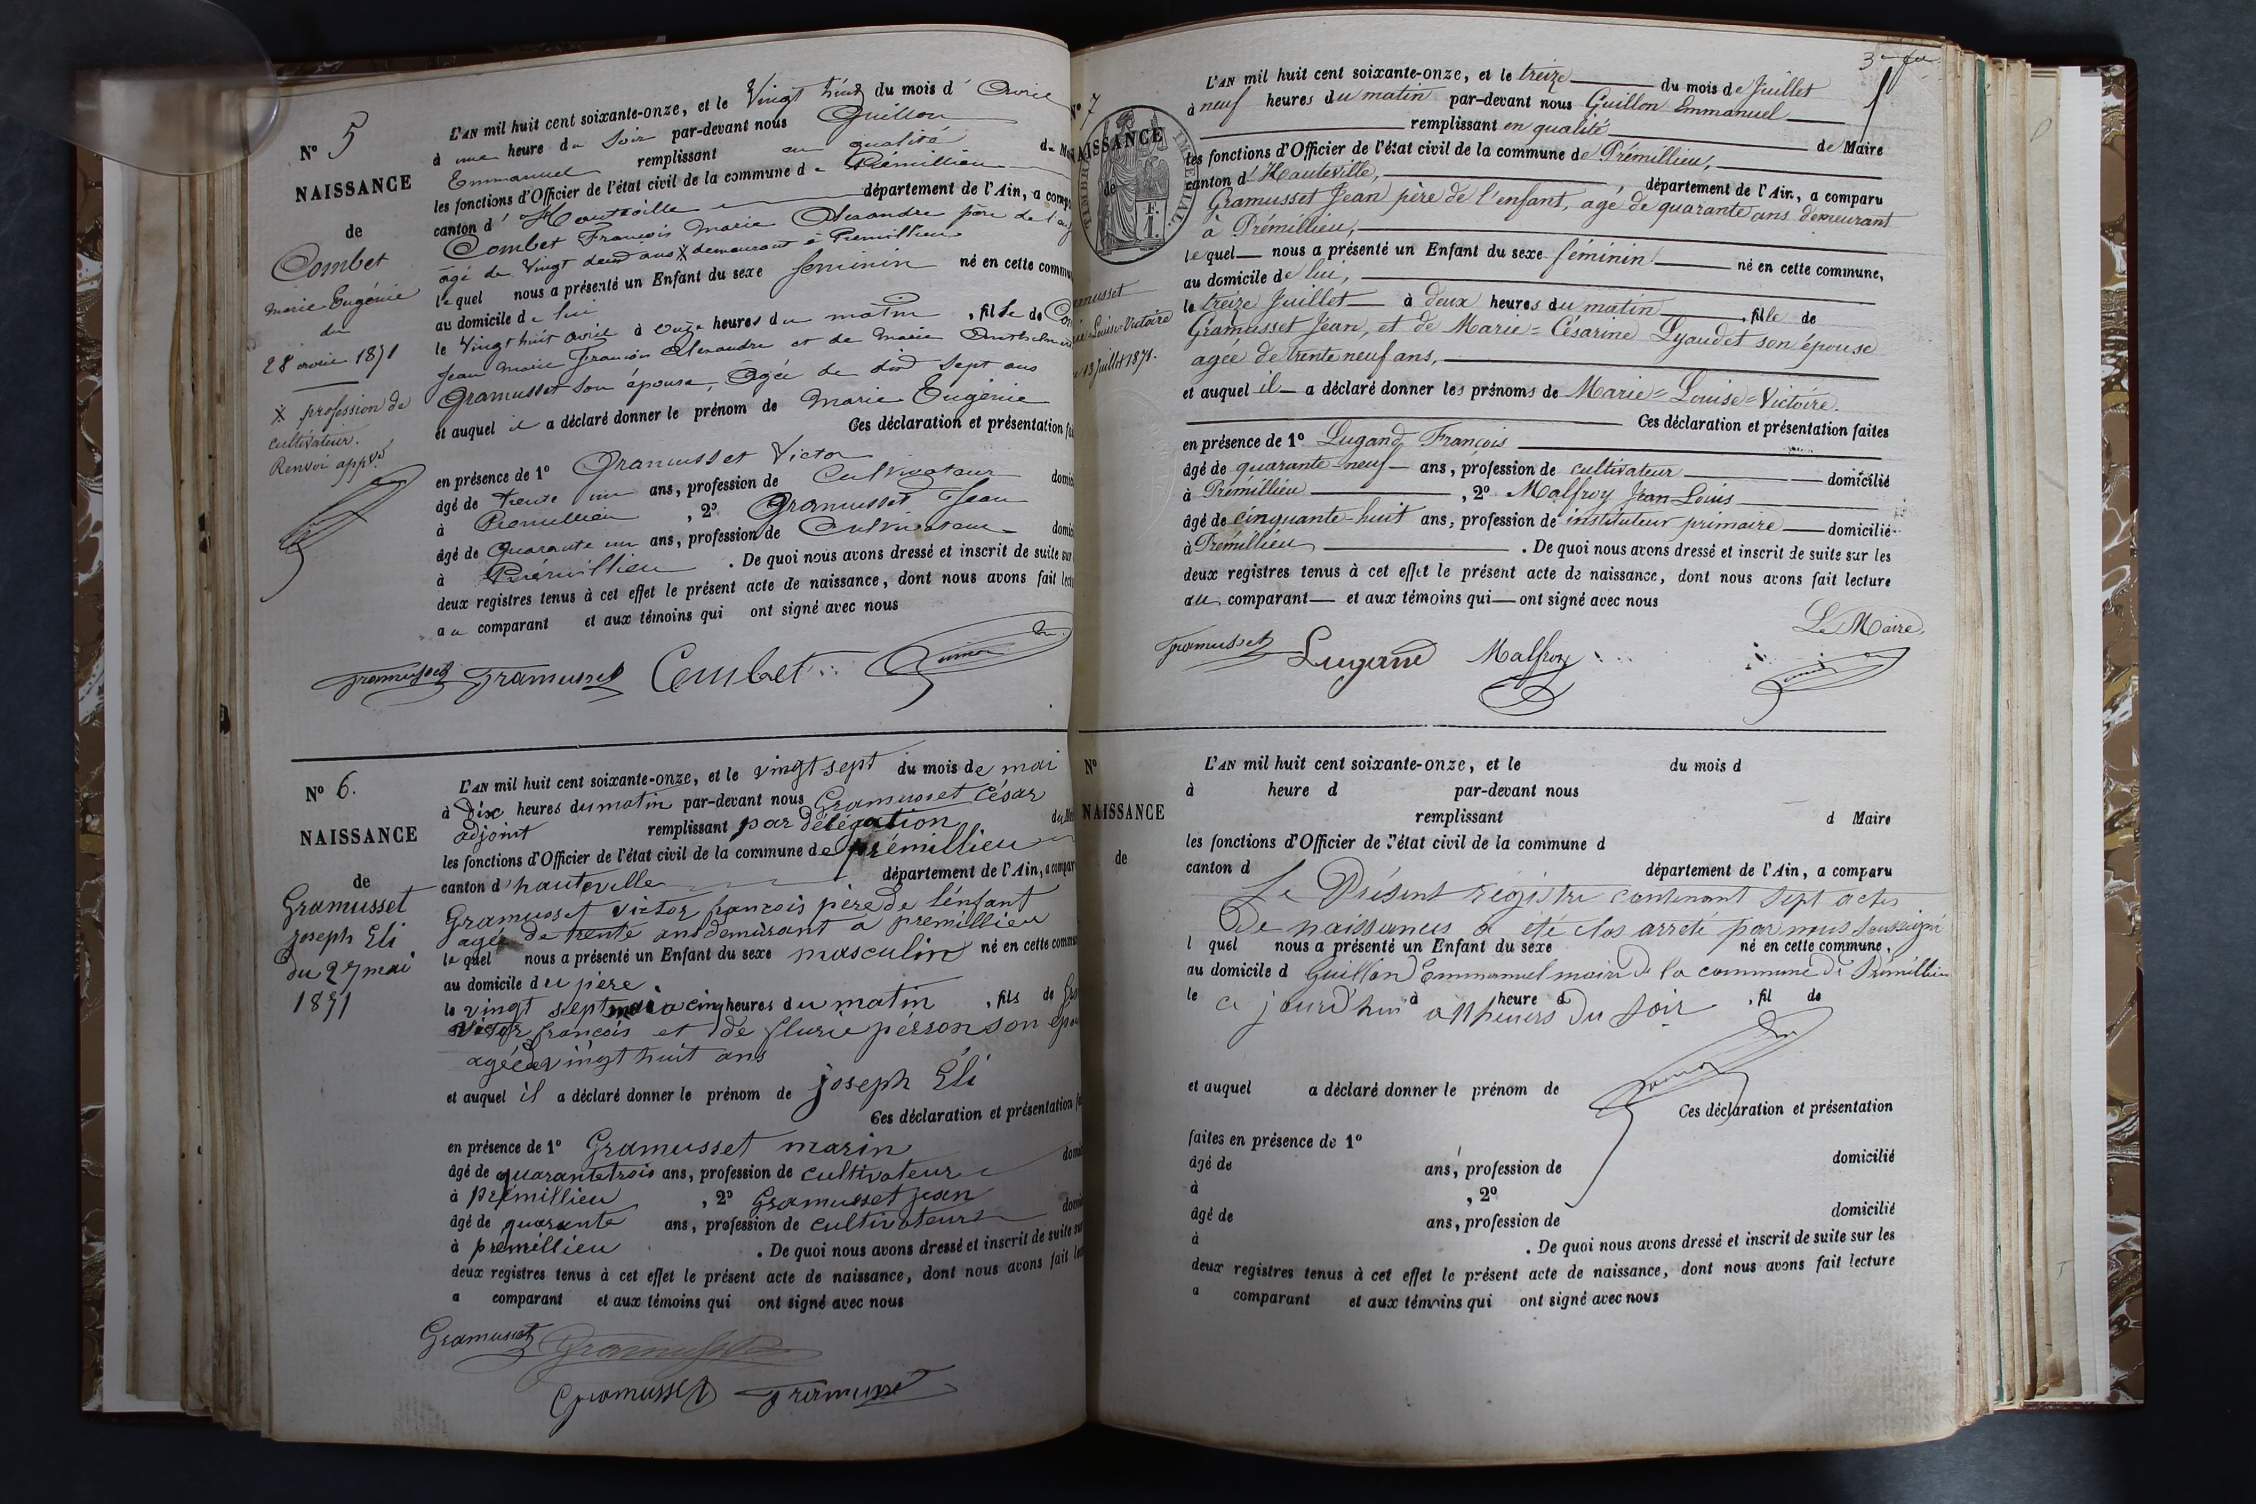 N° 5
NAISSANCE
de
Combet
Marie Eugénie
du
28 avril 1871
X profession de
cultivateur.
Renvoi appvé
L'AN mil huit cent soixante-onze, et le Vingt huit du mois d' Avril
à une heure du Soir par-devant nous Guillon
Emmanuel remplissant en qualité de M
les fonctions d'Officier de l'état civil de la commune de Prémillieu
canton d' Hauteville département de l'Ain, a comp
Combet François Marie Alexandre père de l'enf
âgé de Vingt deux ans X demeurant à Prémillieu
lequel nous a présenté un Enfant du sexe féminin né en cette commu
au domicile de lui
le Vingt huit avril à onze heures du matin, fille de Com
Jean Marie François Alexandre et de Marie Anthelmine
Gramusset son épouse, Agée de dix sept ans
et auquel il a déclaré donner le prénom de Marie Eugénie
Ces déclaration et présentation fai
en présence de 1° Gramusset Victor
âgé de trente un ans, profession de Cultivateur domici
à Prémillieu, 2° Gramusset Jean
âgé de Quarante un ans, profession de Cultivateur domici
à Prémillieu. De quoi nous avons dressé et inscrit de suite sur
deux registres tenus à cet effet le présent acte de naissance, dont nous avons fait lectu
au comparant et aux témoins qui ont signé avec nous
Gramusset Gramusset Combet Guillon
N° 6.
NAISSANCE
de
Gramusset
joseph Eli
du 27 mai
1871
L'AN mil huit cent soixante-onze, et le vingt sept du mois de mai
à Dix heures du matin par-devant nous Gramusset César
adjoint remplissant par délégation du M
les fonctions d'Officier de l'état civil de la commune de prémillieu
canton d' hauteville département de l'Ain, a compar
Gramusset victor françois père de l'énfant
agé de trente ans demeurant à premillieu
lequel nous a présenté un Enfant du sexe masculin né en cette commu
au domicile du père
le vingt sept mai a cinq heures du matin, fils de Gra
victor françois et de flurie pérron son épou
agée de vingt huit ans
et auquel il a déclaré donner le prénom de joseph Éli
Ces déclaration et présentation fa
en présence de 1° Gramusset marin
âgé de quarante trois ans, profession de cultivateur domi
à prémillieu, 2° Gramusset jean
âgé de quarante ans, profession de cultivateur domi
à prémillieu. De quoi nous avons dressé et inscrit de suite sur
deux registres tenus à cet effet le présent acte de naissance, dont nous avons fait lec
a comparant et aux témoins qui ont signé avec nous
Gramusset Gramusset
Gramusset Gramusset
N° 7
NAISSANCE
de
amusset
Louise-Victoire
13 juillet 1871.
L'AN mil huit cent soixante-onze, et le treize du mois de Juillet
à neuf heures du matin par-devant nous Guillon Emmanuel
remplissant en qualité de Maire
les fonctions d'Officier de l'état civil de la commune de Prémillieu,
canton d' Hauteville, département de l'Ain, a comparu
Gramusset Jean père de l'enfant, agé de quarante ans demeurant
à Prémillieu,
lequel nous a présenté un Enfant du sexe féminin né en cette commune,
au domicile de lui,
le treize Juillet à deux heures du matin, fille de
Gramusset Jean, et de Marie=Césarine Lyaudet son épouse
agée de trente neuf ans,
et auquel il a déclaré donner les prénoms de Marie=Louise=Victoire.
Ces déclaration et présentation faites
en présence de 1° Lugand François
âgé de quarante-neuf ans, profession de cultivateur domicilié
à Prémillieu, 2° Malfroy Jean-Louis
âgé de cinquante-huit ans, profession de instituteur primaire domicilié
à Prémillieu. De quoi nous avons dressé et inscrit de suite sur les
deux registres tenus à cet effet le présent acte de naissance, dont nous avons fait lecture
au comparant et aux témoins qui ont signé avec nous
Le Maire,
Gramusset Lugand Malfroy Guillon
N°
NAISSANCE
de
L'AN mil huit cent soixante-onze, et le du mois d
à heure d par-devant nous
remplissant d Maire
les fonctions d'Officier de l'état civil de la commune d
canton d département de l'Ain, a comparu
Le Présent régistre contenant sept actes
De naissances a été clos arrété par nous Soussigné
l quel nous a présenté un Enfant du sexe né en cette commune,
au domicile d Guillon Emmanuel maire de la commune de Prémillieu
le à heure d, fil de
ce jourd'hui a 11 heures Du soir
Guillon
et auquel a déclaré donner le prénom de
Ces déclaration et présentation
faites en présence de 1°
âgé de ans, profession de domicilié
à, 2°
âgé de ans, profession de domicilié
à. De quoi nous avons dressé et inscrit de suite sur les
deux registres tenus à cet effet le présent acte de naissance, dont nous avons fait lecture
a comparant et aux témoins qui ont signé avec nous